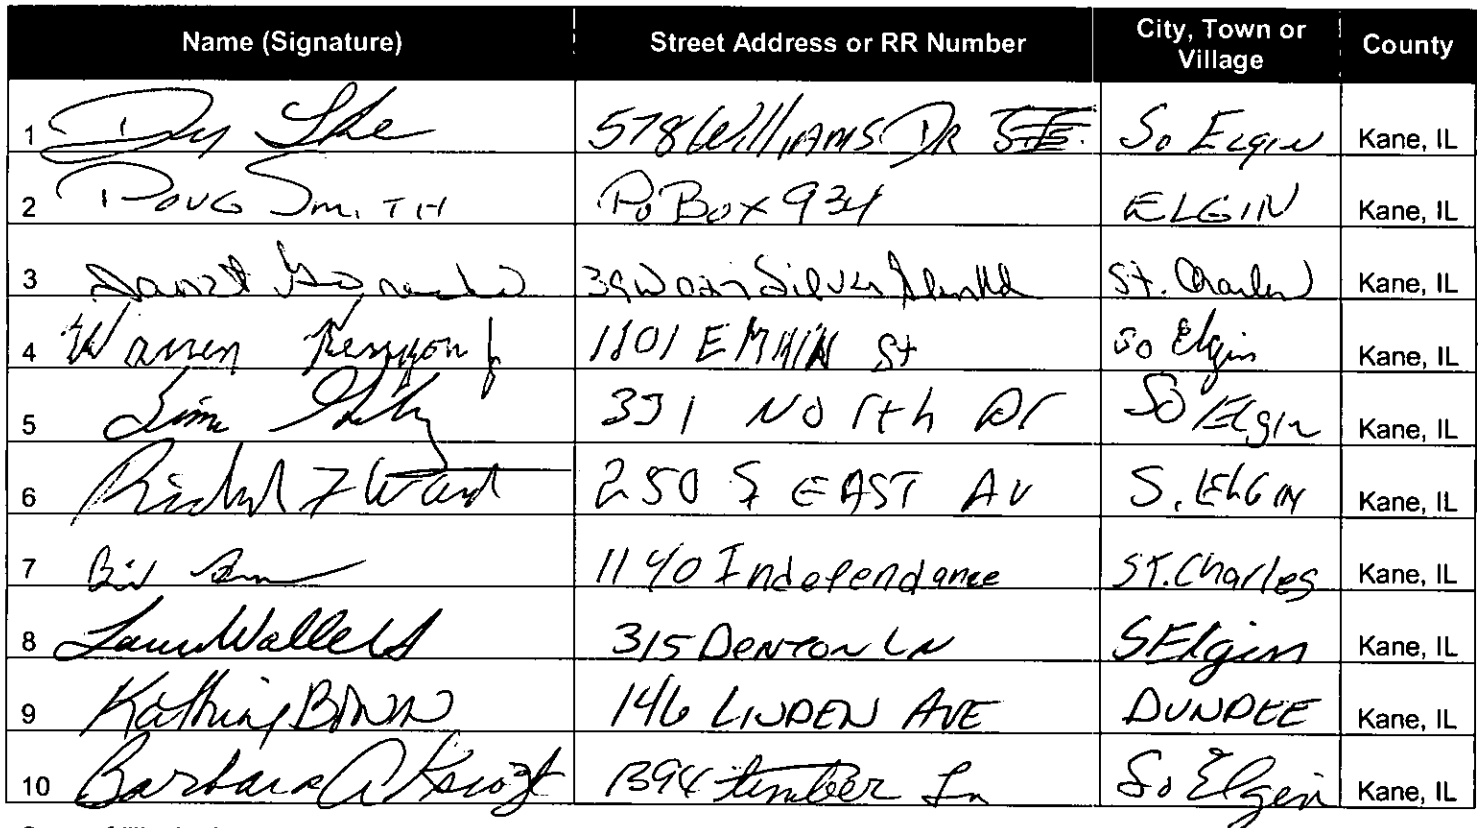 Name (Signature) Street Address or RR Number City, Town or Village County
1 578 Williams DR So Elgin Kane, IL
2 Doug Smith Po Box 934 ELGIN Kane, IL
3 Janet Silver St. Charles Kane, IL
4 Warren Kenyon Jr 1101 E MAIN St So Elgin Kane, IL
5 Jim 331 North Dr So Elgin Kane, IL
6 Richard F Ward 250 S EAST AV S. ELGIN Kane, IL
7 Bill 1140 Independance ST. Charles Kane, IL
8 315 Denton LN S Elgin Kane, IL
9 146 LINDEN AVE DUNDEE Kane, IL
10 Barbara A 1394 timber Ln So Elgin Kane, IL